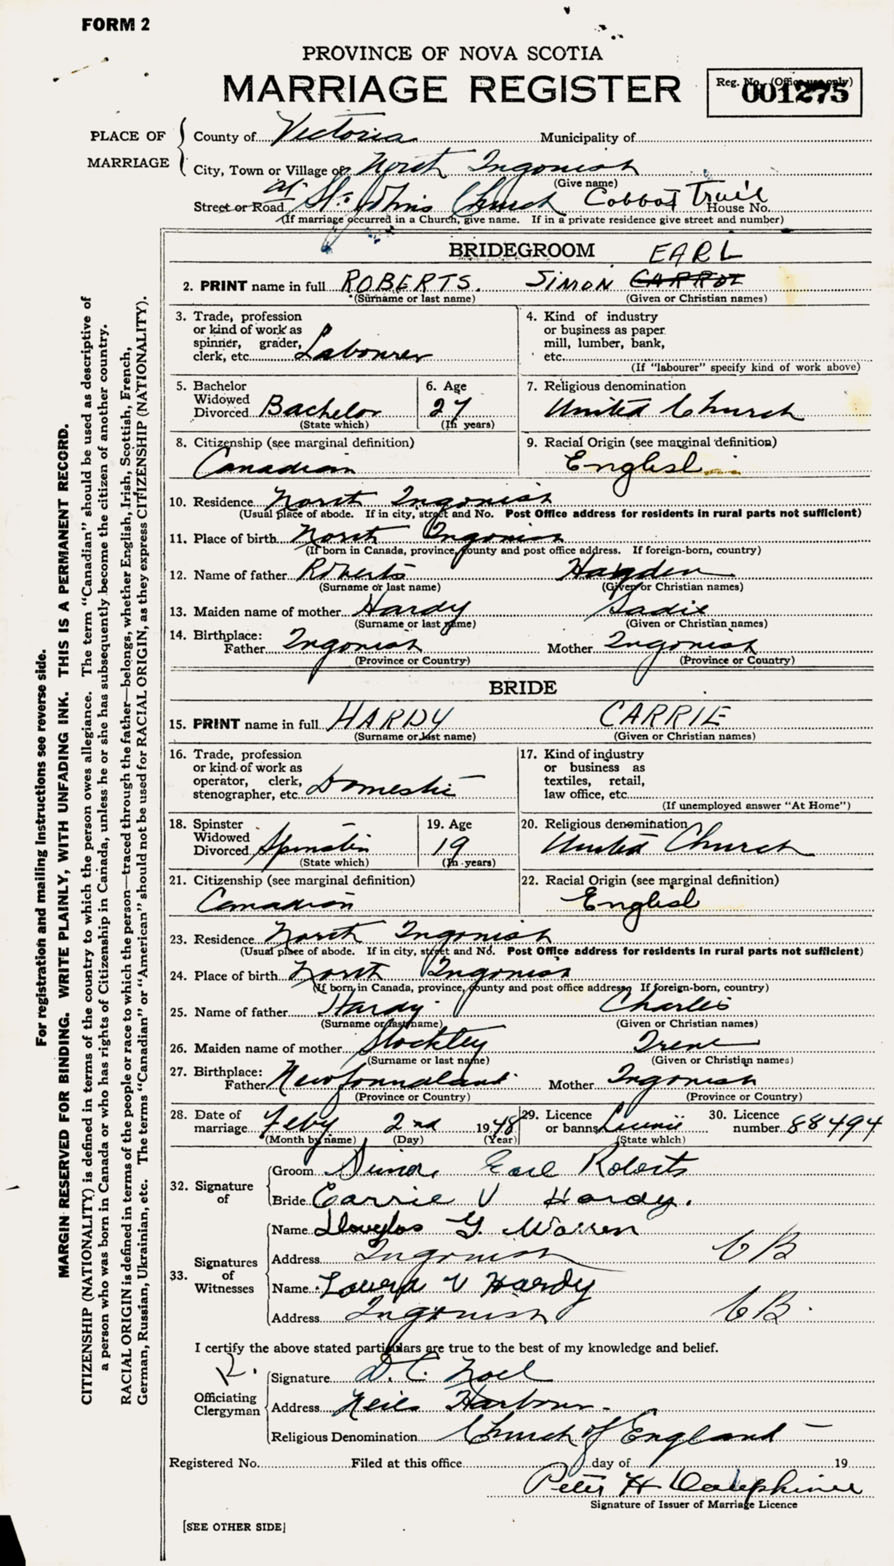 FORM 2
PROVINCE OF NOVA SCOTIA
MARRIAGE REGISTER
Reg. No. (Office use only)
001275
PLACE OF MARRIAGE
County of Victoria Municipality of
City, Town or Village of North Ingonish
(Give name)
Street or Road at St. John's Church Cabbot Trail House No.
(If marriage occurred in a Church, give name. If in a private residence give street and number)
BRIDEGROOM EARL
2. PRINT name in full ROBERTS. SIMON
(Surname or last name) (Given or Christian names)
3. Trade, profession or kind of work as spinner, grader, clerk, etc. Labourer
4. Kind of industry or business as paper mill, lumber, bank, etc.
(If "labourer" specify kind of work above)
5. Bachelor Widowed Divorced Bachelor
(State which)
6. Age 27
(In years)
7. Religious denomination United Church
8. Citizenship (see marginal definition) Canadian
9. Racial Origin (see marginal definition) English
10. Residence North Ingonish
(Usual place of abode. If in city, street and No. Post Office address for residents in rural parts not sufficient)
11. Place of birth North Ingonish
(If born in Canada, province, county and post office address. If foreign-born, country)
12. Name of father Roberts Hayden
(Surname or last name) (Given or Christian names)
13. Maiden name of mother Hardy Sadie
(Surname or last name) (Given or Christian names)
14. Birthplace: Father Ingonish Mother Ingonish
(Province or Country) (Province or Country)
BRIDE
15. PRINT name in full HARDY CARRIE
(Surname or last name) (Given or Christian names)
16. Trade, profession or kind of work as operator, clerk, stenographer, etc. Domestic
17. Kind of industry or business as textiles, retail, law office, etc.
(If unemployed answer "At Home")
18. Spinster Widowed Divorced Spinster
(State which)
19. Age 19
(In years)
20. Religious denomination United Church
21. Citizenship (see marginal definition) Canadian
22. Racial Origin (see marginal definition) English
23. Residence North Ingonish
(Usual place of abode. If in city, street and No. Post Office address for residents in rural parts not sufficient)
24. Place of birth North Ingonish
(If born in Canada, province, county and post office address. If foreign-born, country)
25. Name of father Hardy Charles
(Surname or last name) (Given or Christian names)
26. Maiden name of mother Stockley Irene
(Surname or last name) (Given or Christian names)
27. Birthplace: Father Newfoundland Mother Ingonish
(Province or Country) (Province or Country)
28. Date of marriage Feby 2nd 1948
(Month by name) (Day) (Year)
29. Licence or banns License
(State which)
30. Licence number 88494
32. Signature of
Groom Simon Earl Roberts
Bride Carrie V Hardy.
33. Signatures of Witnesses
Name Douglas G. Warren
Address Ingonish CB
Name Laura V Hardy
Address Ingonish CB.
I certify the above stated particulars are true to the best of my knowledge and belief.
Officiating Clergyman
Signature D. C. Noel
Address Neils Harbour
Religious Denomination Church of England
Registered No. Filed at this office day of 19
Peter H Dauphinee
Signature of Issuer of Marriage Licence
[SEE OTHER SIDE]
For registration and mailing instructions see reverse side.
MARGIN RESERVED FOR BINDING. WRITE PLAINLY, WITH UNFADING INK. THIS IS A PERMANENT RECORD.
CITIZENSHIP (NATIONALITY) is defined in terms of the country to which the person owes allegiance. The term "Canadian" should be used as descriptive of
a person who was born in Canada or who has rights of Citizenship in Canada, unless he or she has subsequently become the citizen of another country.
RACIAL ORIGIN is defined in terms of the people or race to which the person—traced through the father—belongs, whether English, Irish, Scottish, French,
German, Russian, Ukrainian, etc. The terms "Canadian" or "American" should not be used for RACIAL ORIGIN, as they express CITIZENSHIP (NATIONALITY).